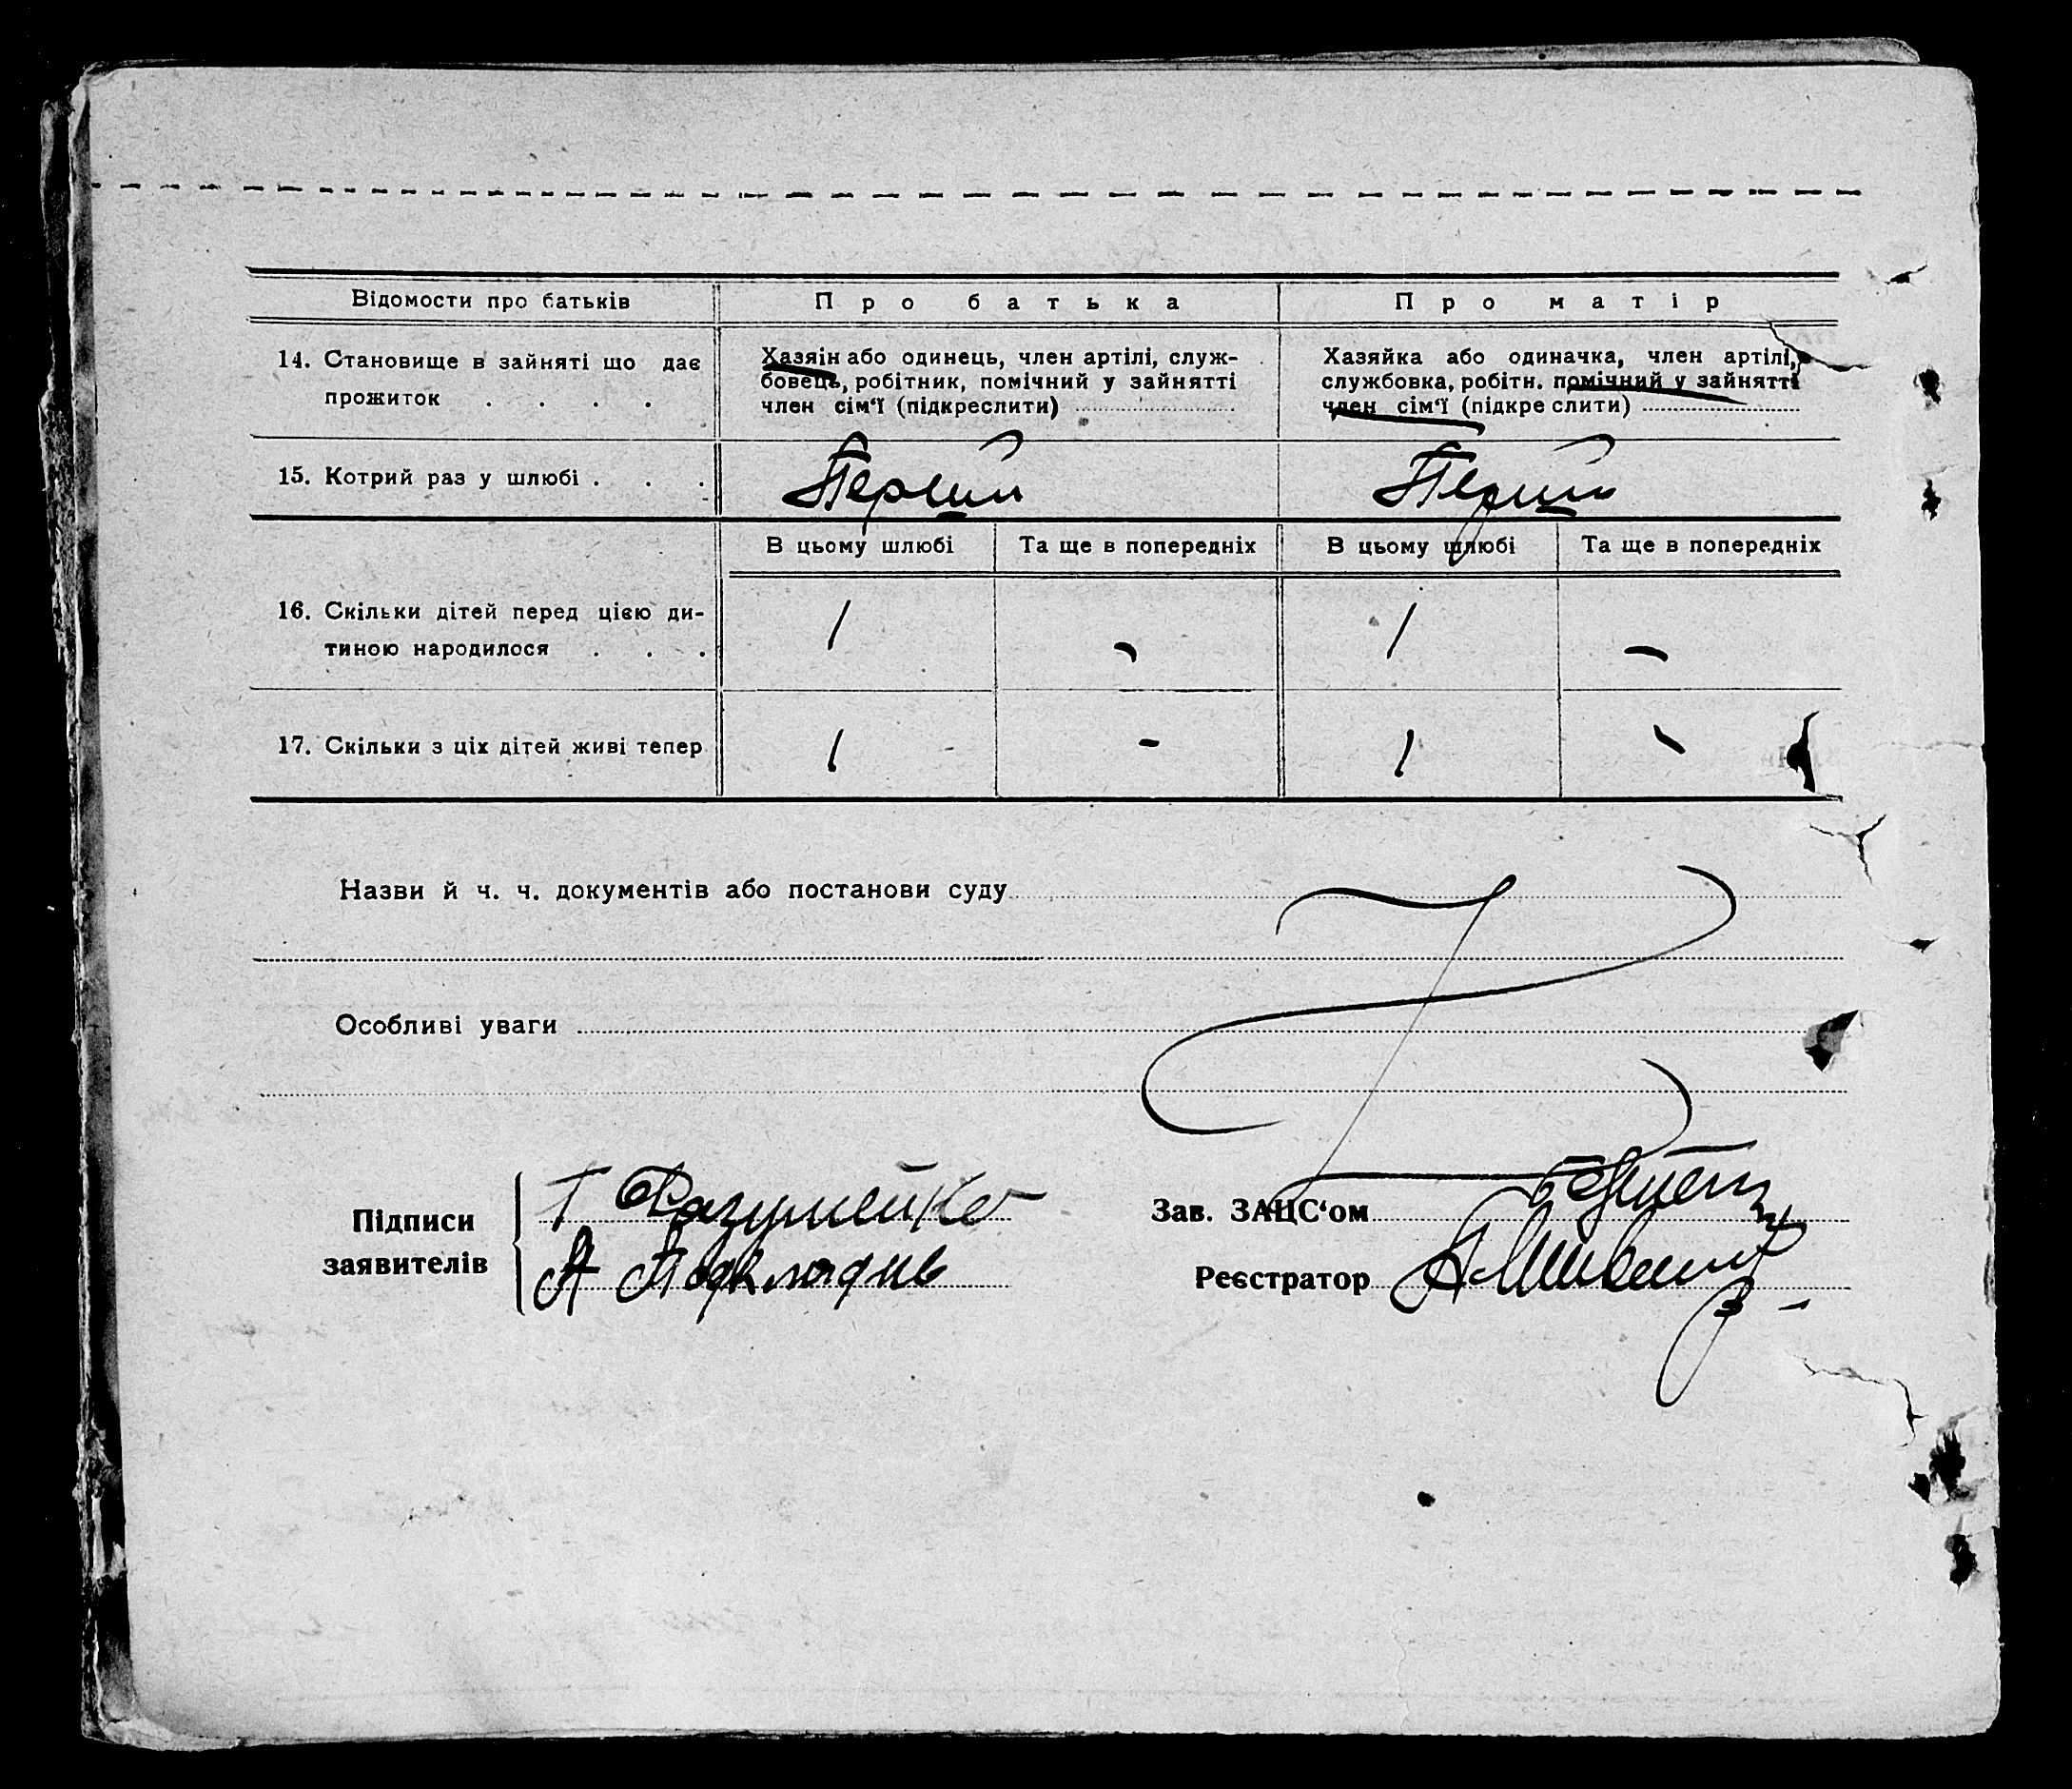 Відомости про батьків
Про батька
Про матір
14. Становище в зайняті що дає
прожиток . . . .
Хазяїн або одинець, член артілі, служ-
бовець, робітник, помічний у зайнятті
член сім‘ї (підкреслити)
Хазяйка або одиначка, член артілі,
службовка, робітн. помічний у зайнятті
член сім‘ї (підкре слити)
15. Котрий раз у шлюбі . . .
Перший
Перший
В цьому шлюбі
Та ще в попередніх
В цьому шлюбі
Та ще в попередніх
16. Скільки дітей перед цією ди-
тиною народилося . . .
1
-
1
-
17. Скільки з ціх дітей живі тепер
1
-
1
-
Назви й ч. ч. документів або постанови суду
Особливі уваги
Підписи
заявителів
Г Разумейко
А
Зав. ЗАЦС‘ом
Реєстратор